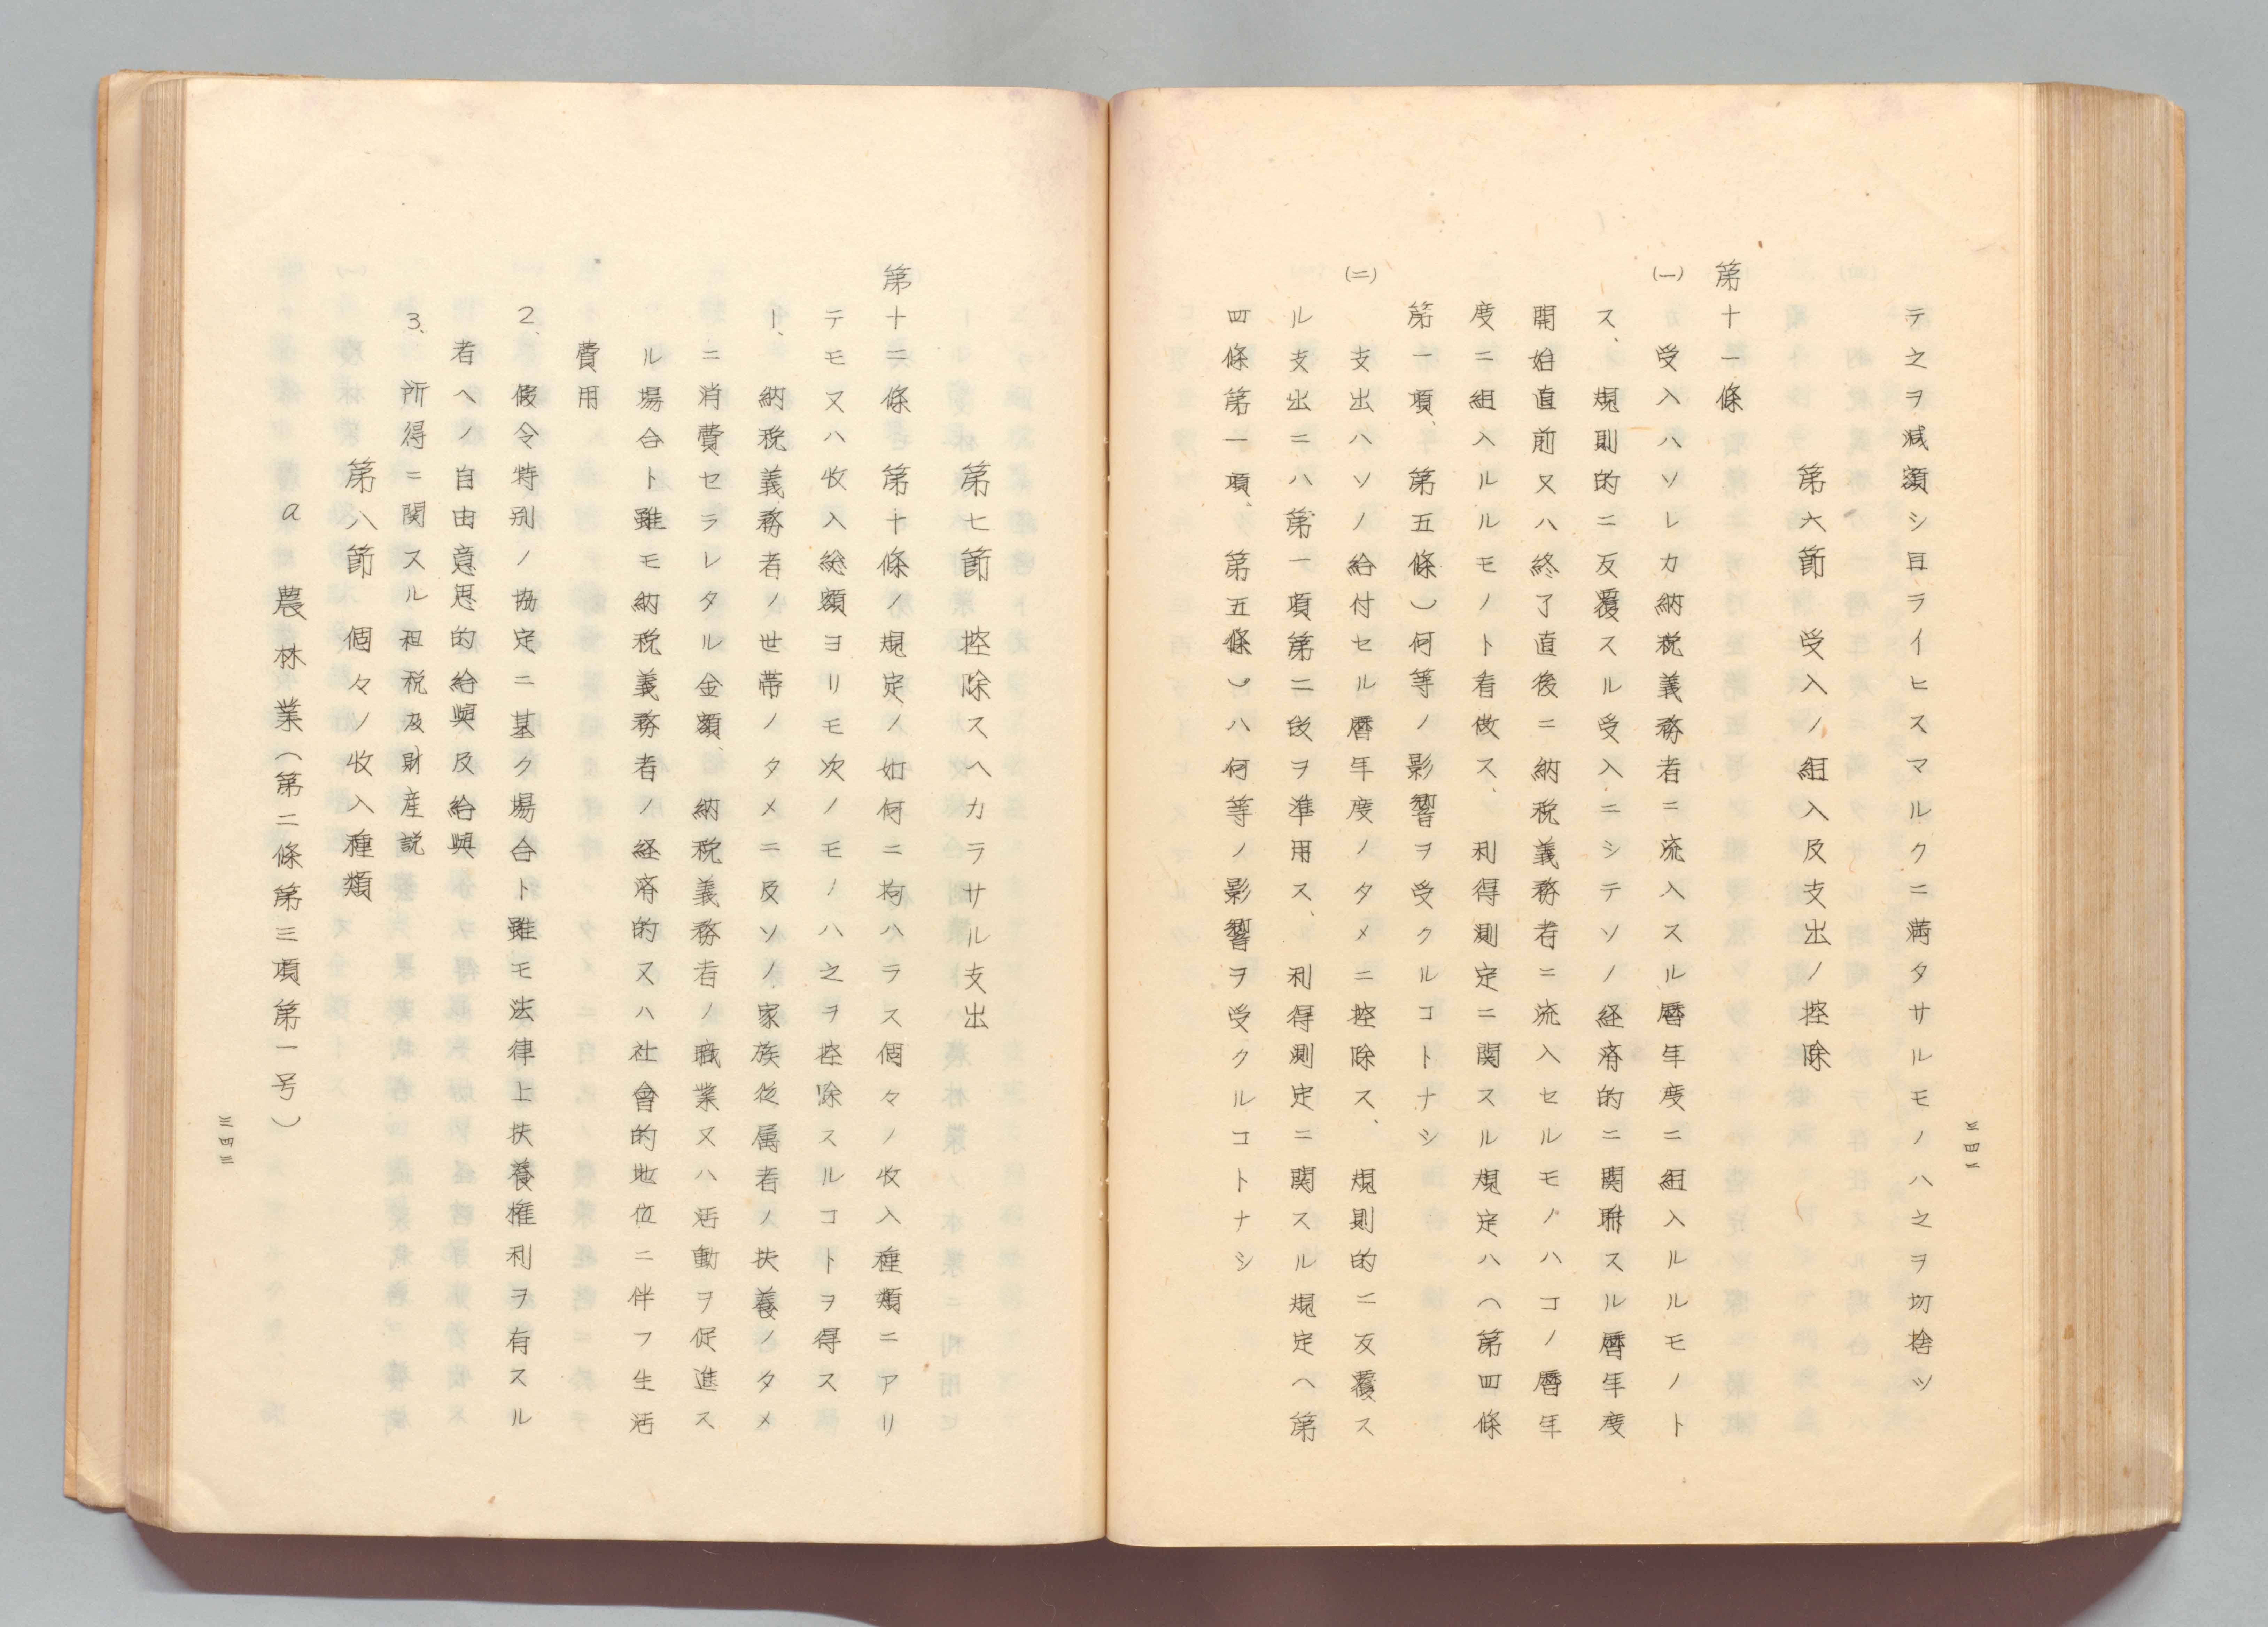 テ之ヲ減額シ且ライヒスマルクニ満タサルモノハ之ヲ切捨ツ
第六節　受入ノ組入及支出ノ控除
第十一條
(一)　受入ハソレカ納税義務者ニ流入スル暦年度ニ組入ルルモノト
ス、規則的ニ反覆スル受入ニシテソノ経済的ニ関聯スル暦年度
開始直前又ハ終了直後ニ納税義務者ニ流入セルモノハコノ暦年
度ニ組入ルルモノト看做ス、利得測定ニ関スル規定ハ（第四條
第一項、第五條）何等ノ影響ヲ受クルコトナシ
(二)　支出ハソノ給付セル暦年度ノタメニ控除ス、規則的ニ反覆ス
ル支出ニハ第一項第二段ヲ準用ス、利得測定ニ関スル規定（第
四條第一項、第五條）ハ何等ノ影響ヲ受クルコトナシ
三四二
第七節　控除スヘカラサル支出
第十二條　第十條ノ規定ノ如何ニ拘ハラス個々ノ收入種類ニアリ
テモ又ハ收入総額ヨリモ次ノモノハ之ヲ控除スルコトヲ得ス
1、納税義務者ノ世帯ノタメニ及ソノ家族従属者ノ扶養ノタメ
ニ消費セラレタル金額、納税義務者ノ職業又ハ活動ヲ促進ス
ル場合ト雖モ納税義務者ノ経済的又ハ社會的地位ニ伴フ生活
費用
2、假令特別ノ協定ニ基ク場合ト雖モ法律上扶養権利ヲ有スル
者ヘノ自由意思的給與及給與
3、所得ニ関スル租税及財産説
第八節　個々ノ收入種類
a　農林業（第二條第三項第一号）
三四三